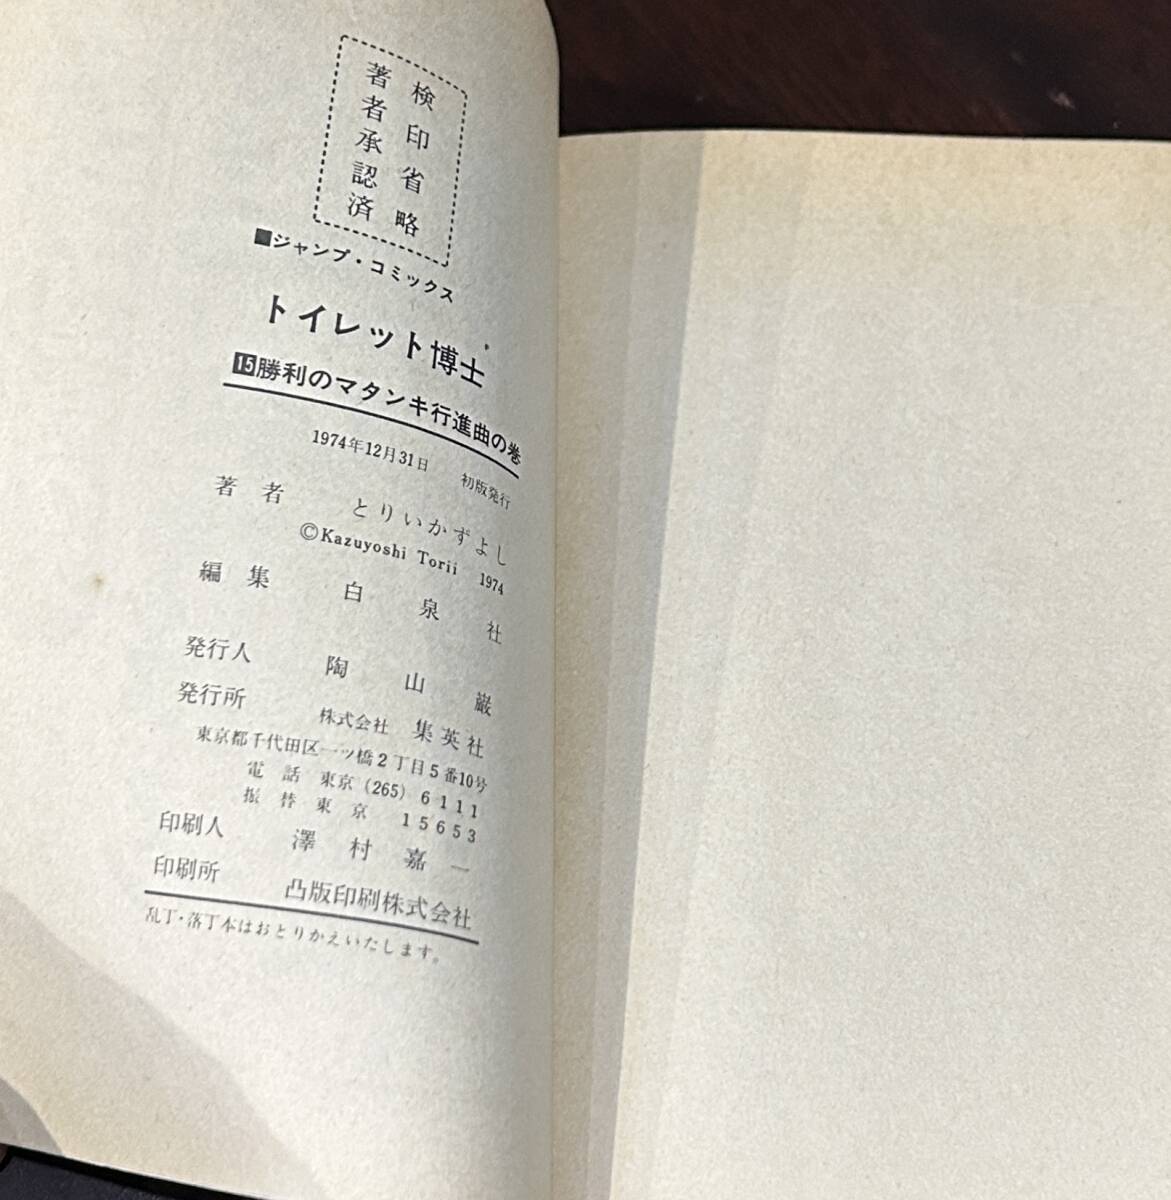 検印省略
著者承認済
■ジャンプ・コミックス
トイレット博士
15勝利のマタンキ行進曲の巻
1974年12月31日 初版発行
著者 とりいかずよし
©Kazuyoshi Torii 1974
編集 白泉社
発行人 陶山巌
発行所 株式会社 集英社
東京都千代田区一ツ橋2丁目5番10号
電話 東京 (265) 6111
振替東京 15653
印刷人 澤村嘉一
印刷所 凸版印刷株式会社
乱丁・落丁本はおとりかえいたします。